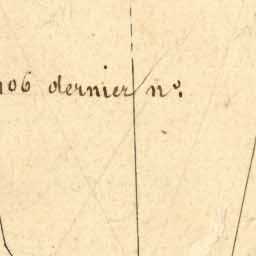 106 dernier n°.